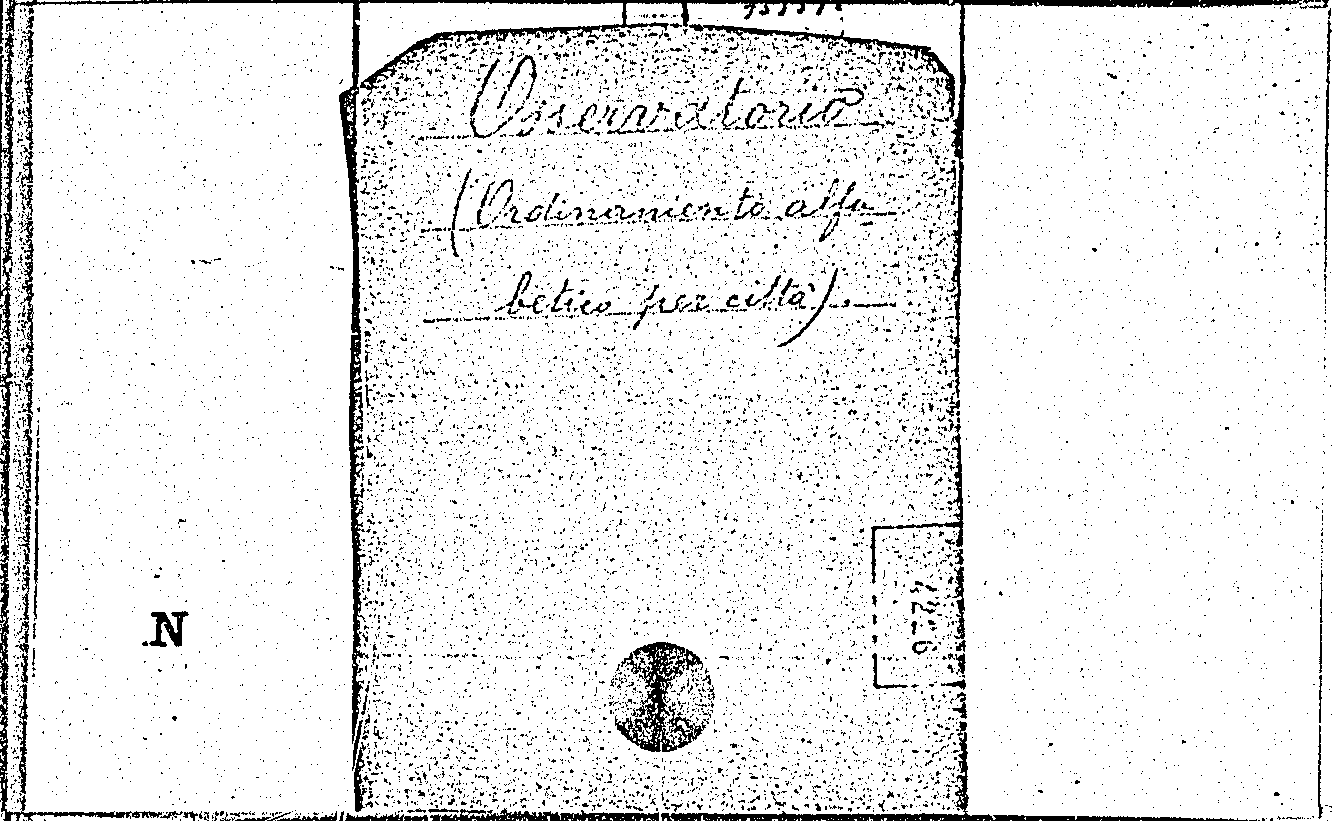 Osservatorio
(Ordinamento alfa
betico per città).
N